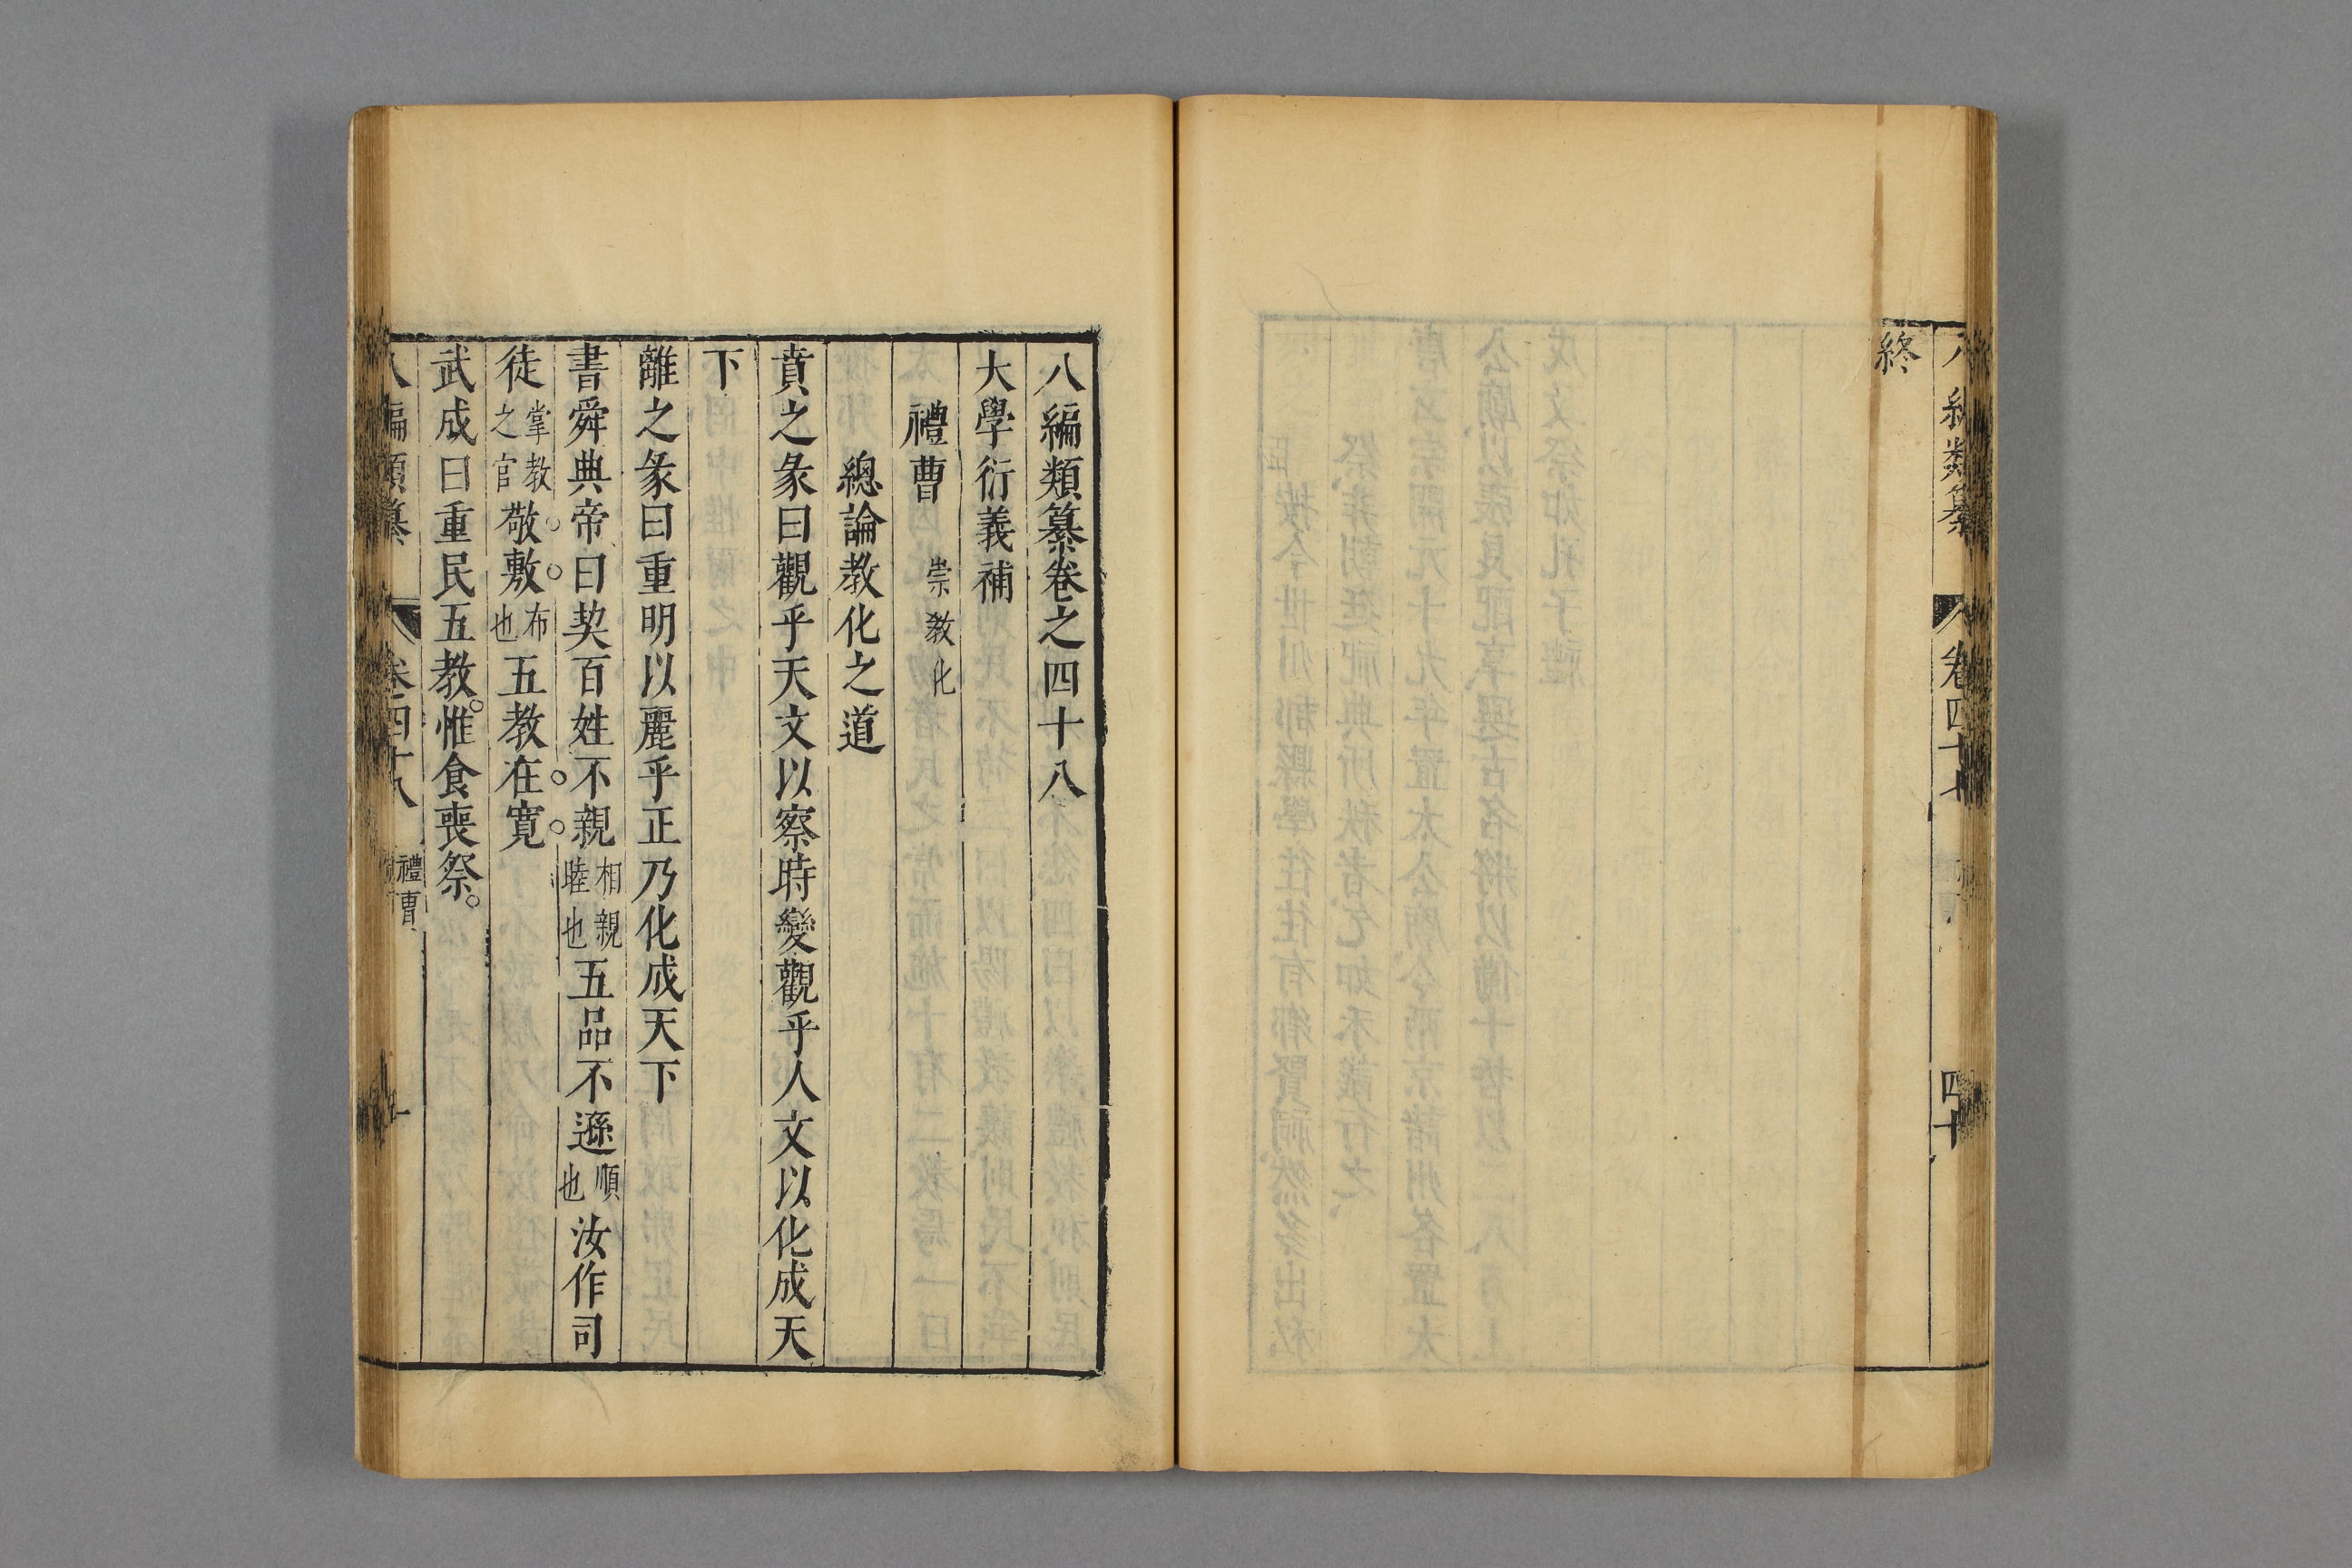 終
八編類纂 卷四十七 四十
八編類纂卷之四十八
大學衍義補
禮曹 崇教化
總論教化之道
賁之彖曰觀乎天文以察時變觀乎人文以化成天
下
離之彖曰重明以麗乎正乃化成天下
書舜典帝曰契百姓不親相親睦也五品不遜順也汝作司
徒掌教之官敬敷布也五教在寬
武成曰重民五教惟食喪祭
八編類纂 卷四十八 禮曹 一